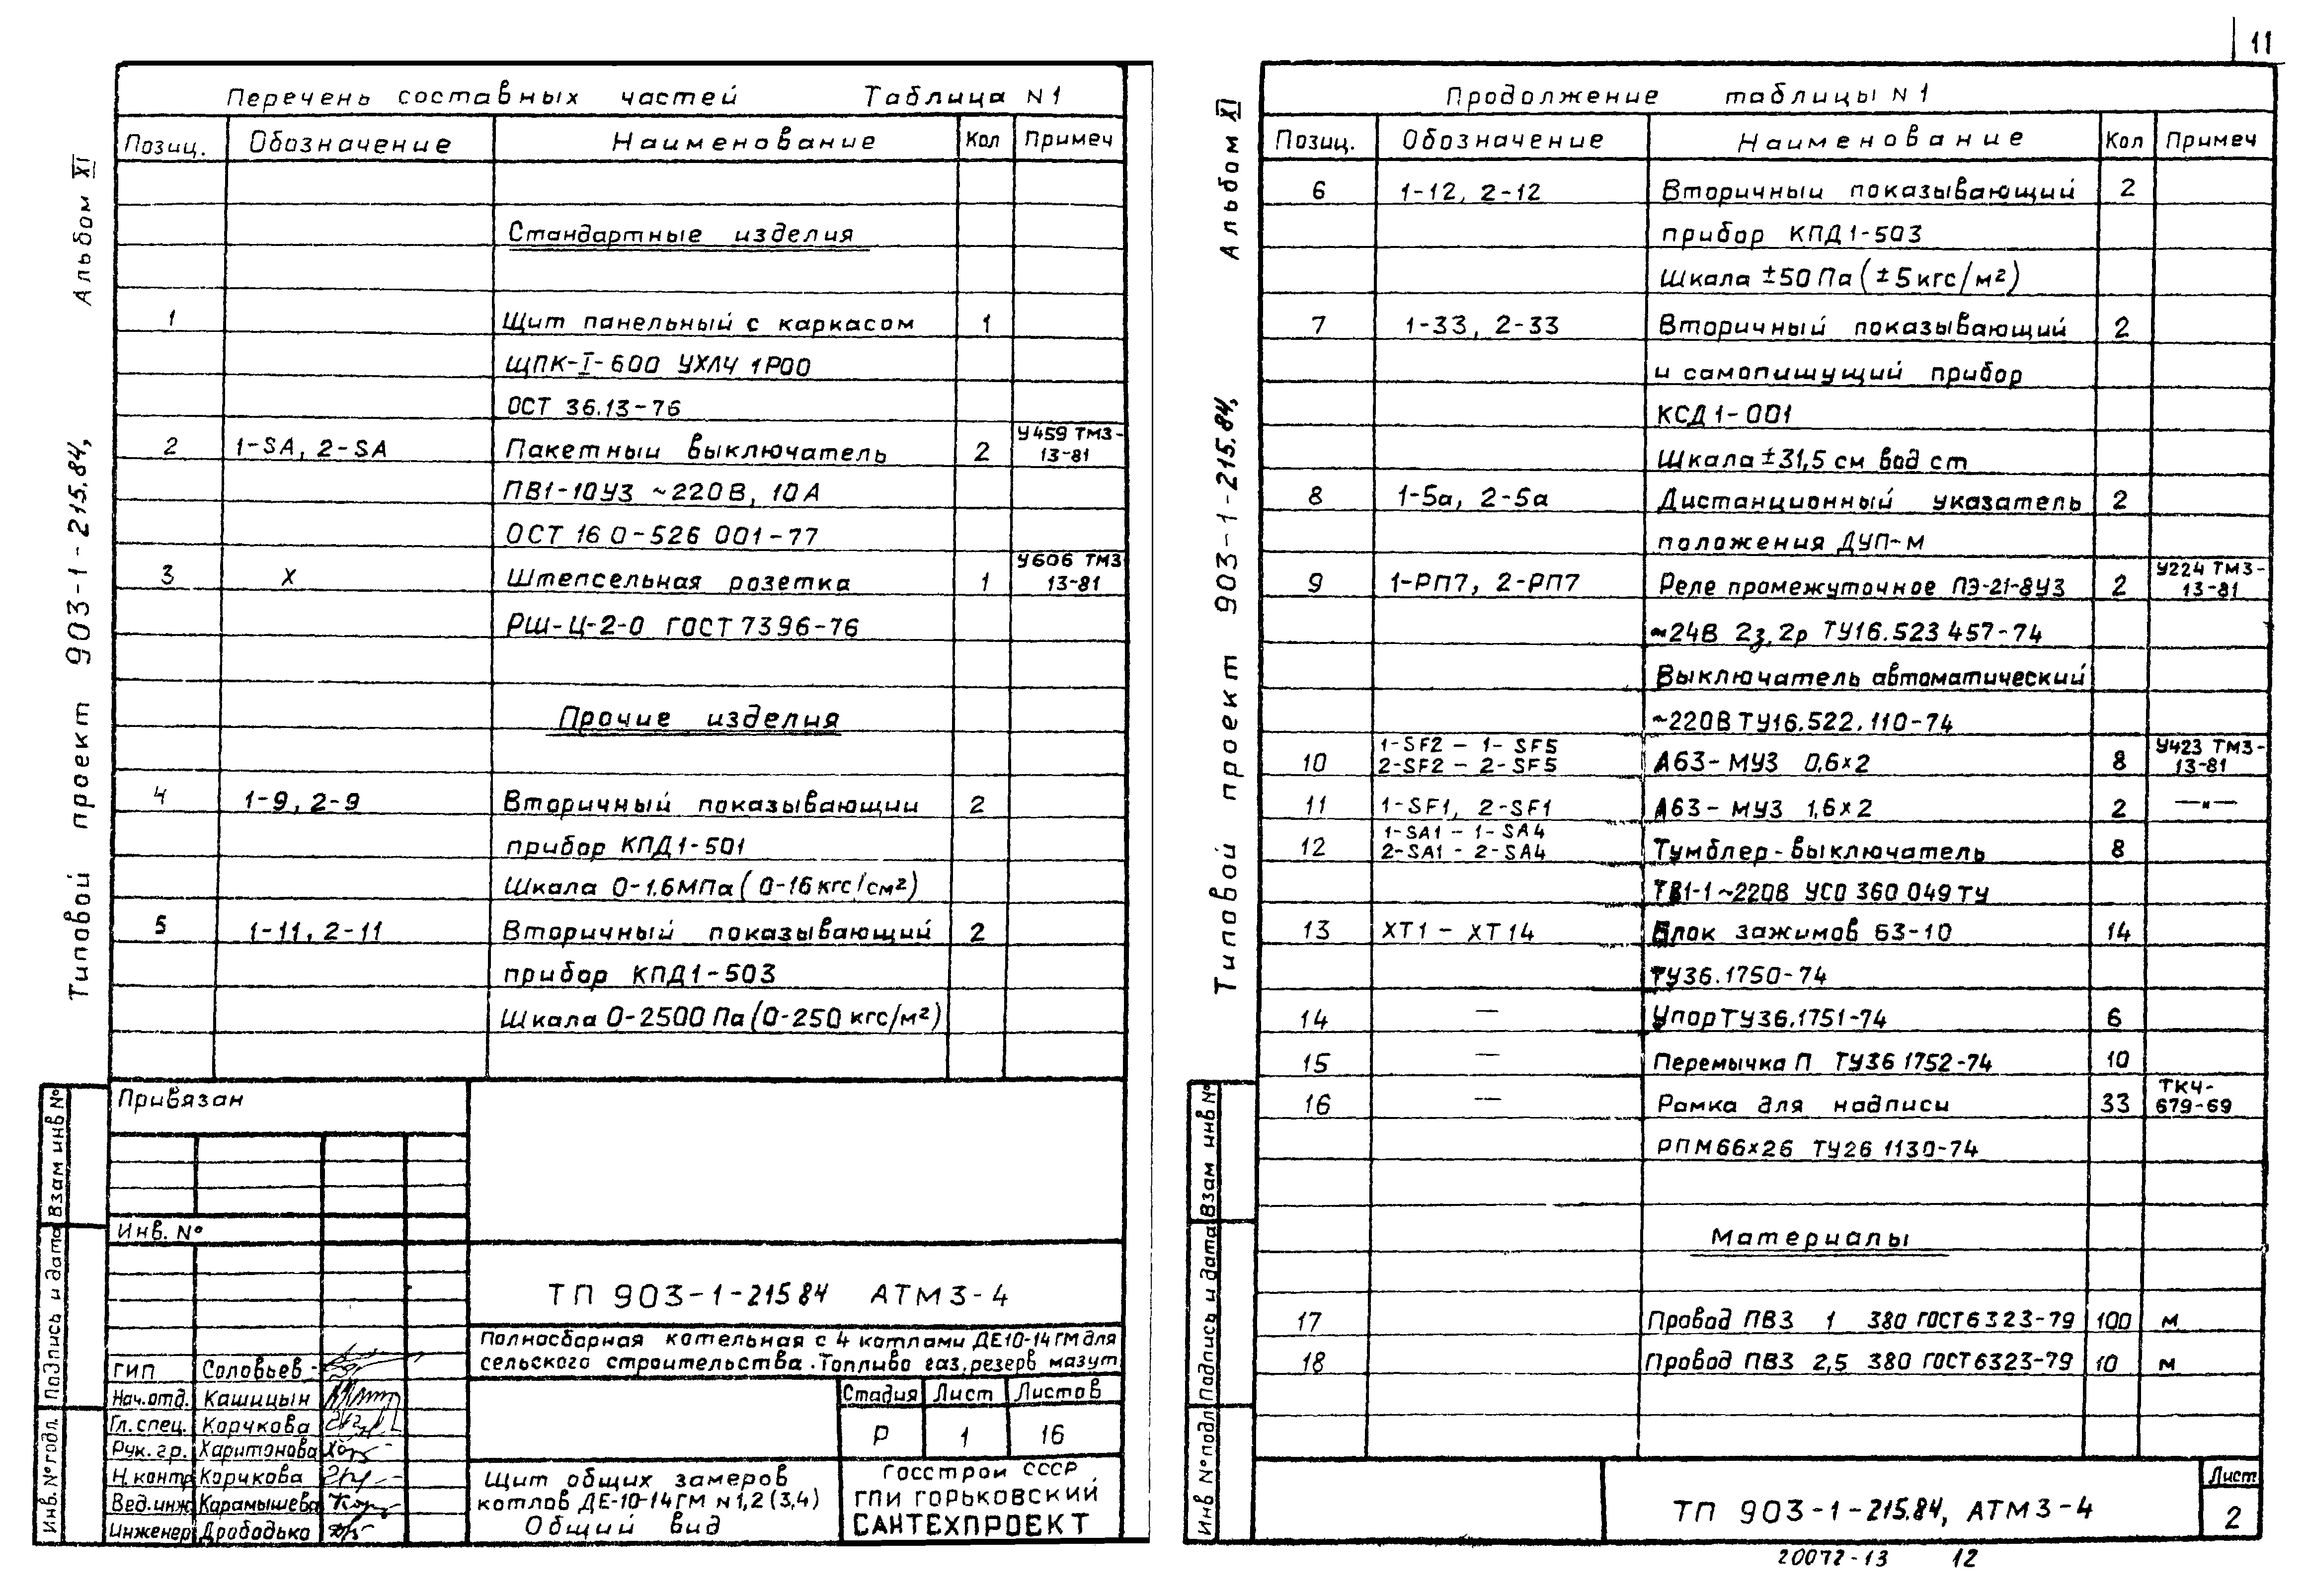 11
Альбом XI
Типовой проект 903-1-215.84,
Перечень составных частей Таблица N1
Позиц. Обозначение Наименование Кол Примеч
Стандартные изделия
1 Щит панельный с каркасом 1
ЩПК-I-600 УХЛ4 1Р00
ОСТ 36.13-76
2 1-SA, 2-SA Пакетный выключатель 2 У459 ТМ3-
13-81
ПВ1-10У3 ~220В, 10А
ОСТ 16 0-526 001-77
3 X Штепсельная розетка 1 У606 ТМ3
13-81
РШ-Ц-2-0 ГОСТ 7396-76
Прочие изделия
4 1-9, 2-9 Вторичный показывающий 2
прибор КПД1-501
Шкала 0-1.6МПа (0-16кгс/см²)
5 1-11, 2-11 Вторичный показывающий 2
прибор КПД1-503
Шкала 0-2500 Па (0-250 кгс/м²)
Привязан
Инв. №
ТП 903-1-215 84 АТМ3-4
Полносборная котельная с 4 котлами ДЕ10-14ГМ для
сельского строительства. Топливо газ, резерв мазут
ГИП Соловьев
Нач.отд. Кашицын
Гл.спец. Корчкова
Рук.гр. Харитонова
Н.контр Корчкова
Вед.инж Карамышева
Инженер Дрободько
Стадия Лист Листов
Р 1 16
Щит общих замеров
котлов ДЕ-10-14ГМ N1,2 (3,4)
Общий вид
Госстрой СССР
ГПИ ГОРЬКОВСКИЙ
САНТЕХПРОЕКТ
Взам инв №
Подпись и дата
Инв. № подл.
Альбом XI
Типовой проект 903-1-215.84,
Продолжение таблицы N1
Позиц. Обозначение Наименование Кол Примеч
6 1-12, 2-12 Вторичный показывающий 2
прибор КПД1-503
Шкала ±50 Па (±5кгс/м²)
7 1-33, 2-33 Вторичный показывающий 2
и самопишущий прибор
КСД1-001
Шкала ±31,5 см вод ст
8 1-5а, 2-5а Дистанционный указатель 2
положения ДУП-М
9 1-РП7, 2-РП7 Реле промежуточное ПЭ-21-8У3 2 У224 ТМ3-
13-81
~24В 2з, 2р ТУ16.523 457-74
Выключатель автоматический
~220В ТУ16.522.110-74
10 1-SF2 - 1-SF5
2-SF2 - 2-SF5 А63-МУ3 0,6x2 8 У423 ТМ3-
13-81
11 1-SF1, 2-SF1 А63-МУ3 1,6x2 2 —"—
12 1-SA1 - 1-SA4
2-SA1 - 2-SA4 Тумблер-выключатель 8
ТВ1-1 ~220В УС0 360 049 ТУ
13 ХТ1 - ХТ14 Блок зажимов БЗ-10 14
ТУ36.1750-74
14 — Упор ТУ36.1751-74 6
15 — Перемычка П ТУ36 1752-74 10
16 — Рамка для надписи 33 ТК4-
679-69
РПМ66x26 ТУ26 1130-74
Материалы
17 Провод ПВ3 1 380 ГОСТ6323-79 100 м
18 Провод ПВ3 2,5 380 ГОСТ6323-79 10 м
Взам инв №
Подпись и дата
Инв № подл
ТП 903-1-215.84, АТМ3-4
Лист
2
20072-13 12